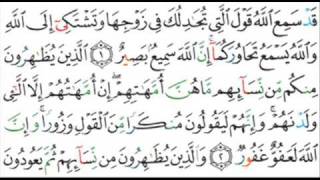 قَدْ سَمِعَ ٱللَّهُ قَوْلَ ٱلَّتِي تُجَٰدِلُكَ فِي زَوْجِهَا وَتَشْتَكِيٓ إِلَى ٱللَّهِ
وَٱللَّهُ يَسْمَعُ تَحَاوُرَكُمَآ إِنَّ ٱللَّهَ سَمِيعٌۢ بَصِيرٌ ١ ٱلَّذِينَ يُظَٰهِرُونَ
مِنكُم مِّن نِّسَآئِهِم مَّا هُنَّ أُمَّهَٰتِهِمْ إِنْ أُمَّهَٰتُهُمْ إِلَّا ٱلَّٰٓـِٔي
وَلَدْنَهُمْ وَإِنَّهُمْ لَيَقُولُونَ مُنكَرًا مِّنَ ٱلْقَوْلِ وَزُورًا وَإِنَّ
ٱللَّهَ لَعَفُوٌّ غَفُورٌ ٢ وَٱلَّذِينَ يُظَٰهِرُونَ مِن نِّسَآئِهِمْ ثُمَّ يَعُودُونَ